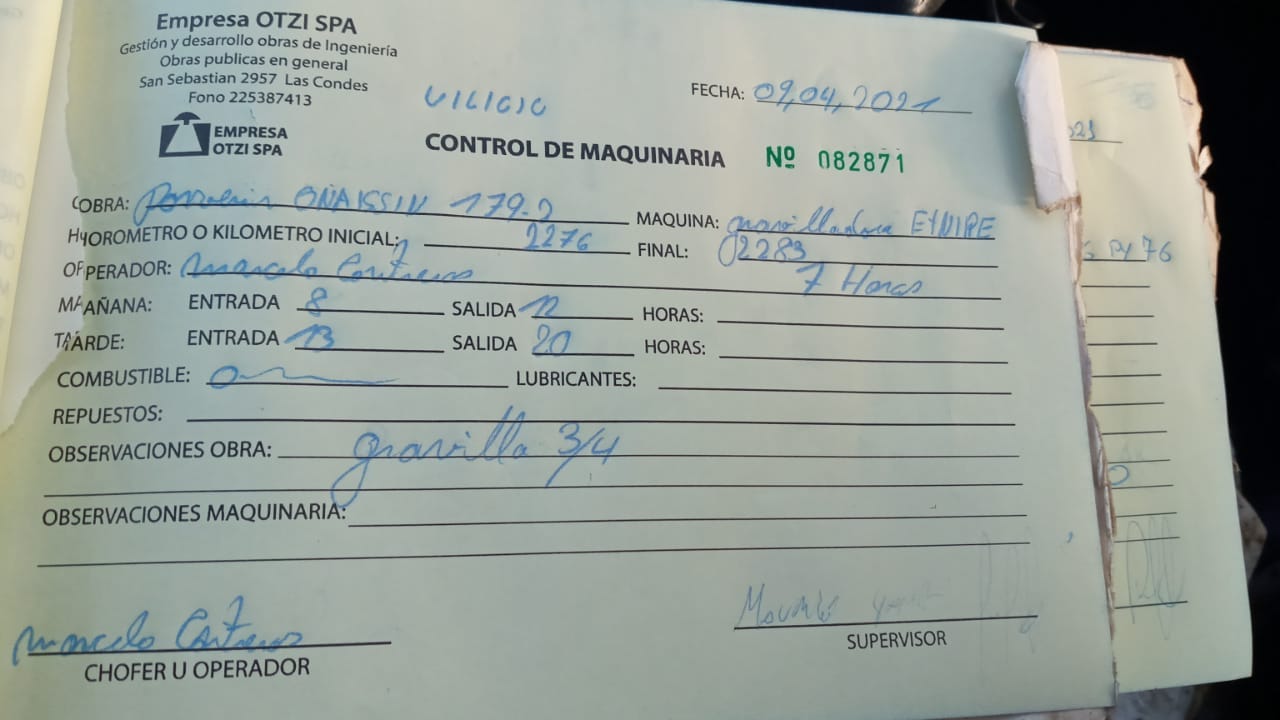 Empresa OTZI SPA
Gestión y desarrollo obras de Ingeniería
Obras publicas en general
San Sebastian 2957 Las Condes
Fono 225387413
EMPRESA
OTZI SPA
FECHA: 09,04,2021
CONTROL DE MAQUINARIA Nº 082871
OBRA: OÑAISSIN 179.2 MAQUINA: gravilladora ETNIRE
HOROMETRO O KILOMETRO INICIAL: 2276 FINAL: 02283
OPERADOR: Marcelo Contreras 7 Horas
MAÑANA: ENTRADA 8 SALIDA 12 HORAS:
TARDE: ENTRADA 13 SALIDA 20 HORAS:
COMBUSTIBLE: LUBRICANTES:
REPUESTOS:
OBSERVACIONES OBRA: gravilla 3/4
OBSERVACIONES MAQUINARIA:
Marcelo Contreras
CHOFER U OPERADOR
SUPERVISOR